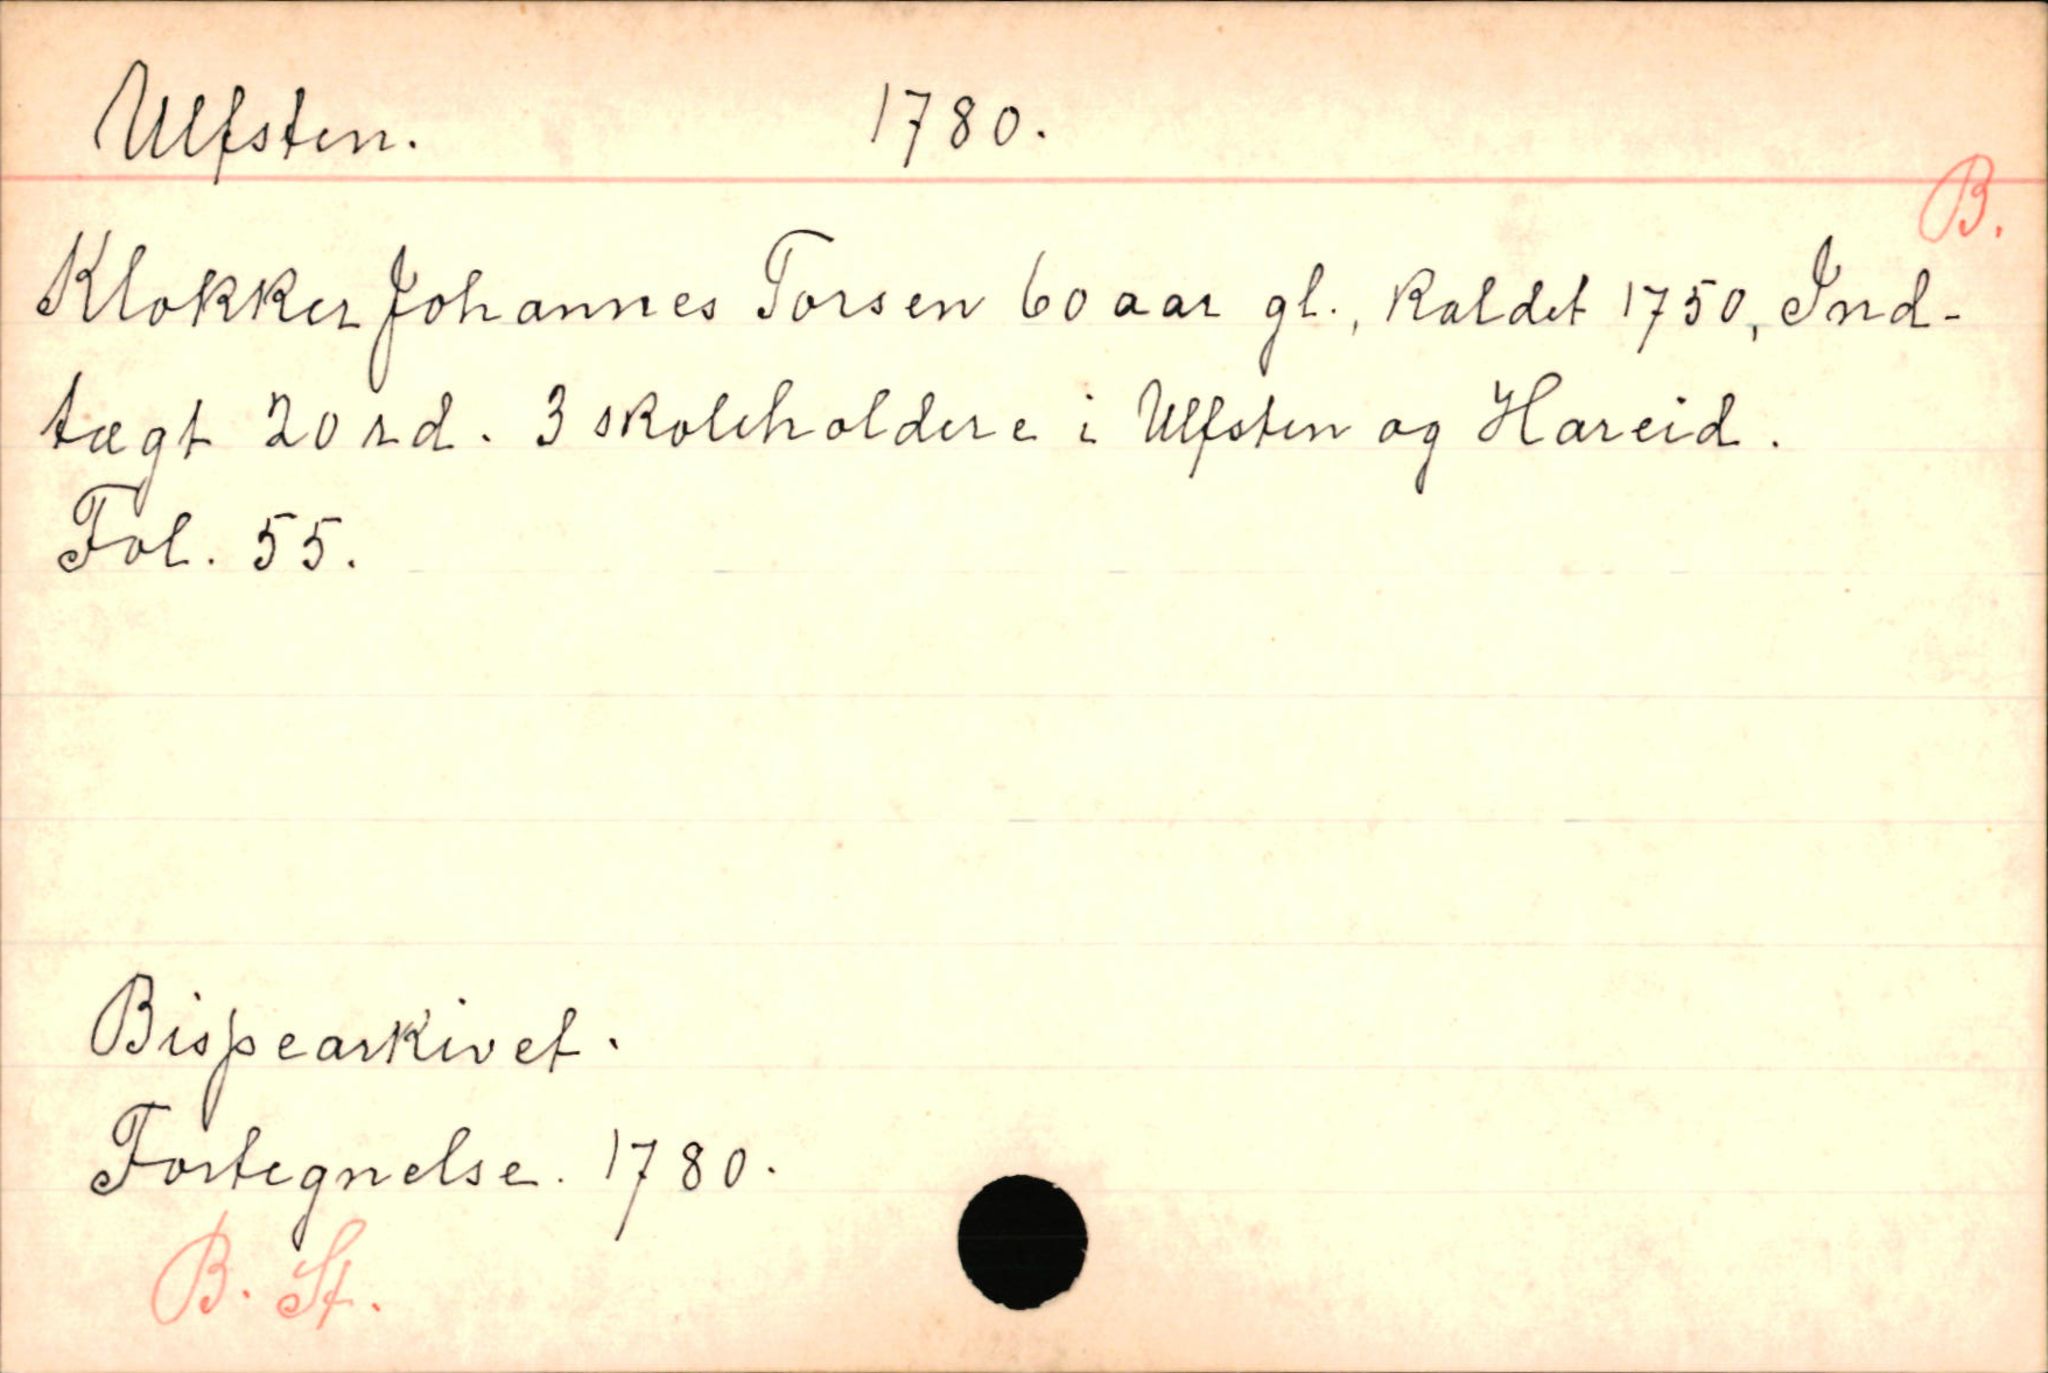 Ulfsten. 1780.
B.
Klokker Johannes Torsen 60 aar gl., kaldet 1750, Ind-
tægt 20 rd. 3 skoleholdere i Ulfsten og Hareid.
Fol. 55.
Bispearkivet.
Fortegnelse. 1780.
B. St.